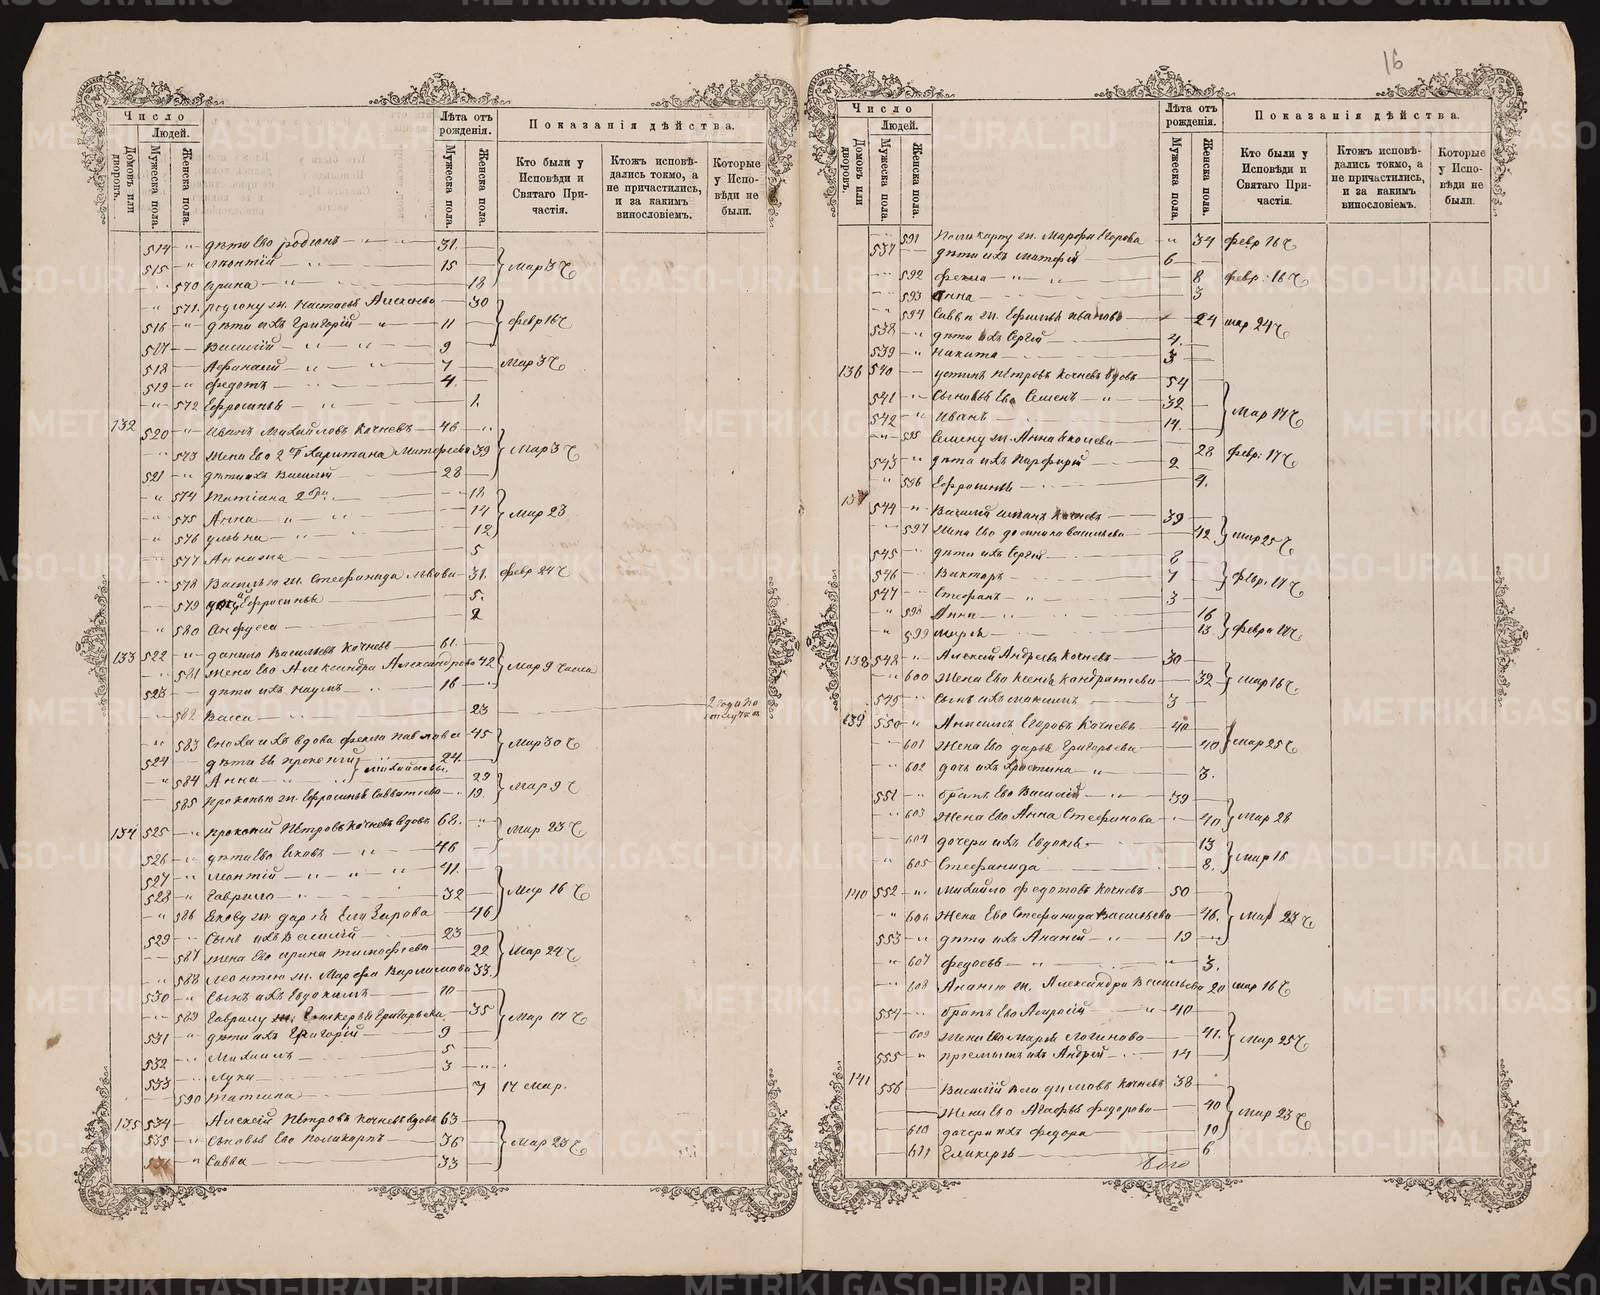 16
Число
Людей.
Домовъ или дворовъ.
Мужеска пола.
Женска пола.
Лѣта отъ рожденія.
Мужеска пола.
Женска пола.
Показанія дѣйства.
Кто были у Исповѣди и Святаго Причастія.
Ктожъ исповѣдались токмо, а не причастились, и за какимъ винословіемъ.
Которые у Исповѣди не были.
514 " дѣти его родіонъ 31.
515 " Леонтій 15
" 570 Арина 18 Мар 3 ч
571. Родіону ж. Настасья 30
516 " дѣти ихъ Григорій 11 февр 16 ч
517 Василій 9
518 Афанасій 7 Мар 3 ч
519 " Федотъ 4.
" 572 Ефросинья 1.
132 520 " Иванъ Михайловъ Кочневъ 46
573 Жена его 2 б. Харитина Матфеева 39 Мар 3 ч
521 дѣти ихъ Василій 28
" 574 Татіана 18
575 Анна 14 Мар 23
" 576 Ульяна 12
577 Анна 5
578 Василью ж. Стефанида Львова 31. февр 24 ч
579 Ефросинья 5.
" 580 Анфуса 2
133 522 " данило Васильевъ Кочневъ 61.
581 Жена его Александра Александрова 42 Мар 9 числа
523 дѣти ихъ Наумъ 16
582 Васса 23 2 года по отлучкѣ
" 583 Сноха ихъ вдова Фекла Павлова 45 Мар 30 ч
524 дѣти ея Прокопій 24.
Михайловы
" 584 Анна 29 Мар 9 ч
585 Прокопью ж. Ефросинья Савватеева 19.
134 525 " Прокопій Петровъ Кочневъ вдовъ 68. Мар 23 ч
526 дѣти его Яковъ 46
527 " Леонтій 41.
528 " Гаврило 32 Мар 16 ч
" 586 Якову ж. дарья Елизарова 46
529 Сынъ ихъ Василій 23
587 Жена его Ирина Тимофеева 22 Мар 24 ч
588 Леонтію ж. Марфа Варламова 33.
530 " Сынъ ихъ Евдокимъ 10
589 Гаврилу ж. Гликерья Григорьева 35 Мар 17 ч
531 " дѣти ихъ Григорій 9
532 Михаилъ 5
533 Лука 3
590 Татіана 7 17 мар.
135 534 Алексій Петровъ Кочневъ вдовъ 63
535 " Сыновья его Поликарпъ 36 Мар 23 ч
536 " Савва 33
Число
Людей.
Домовъ или дворовъ.
Мужеска пола.
Женска пола.
Лѣта отъ рожденія.
Мужеска пола.
Женска пола.
Показанія дѣйства.
Кто были у Исповѣди и Святаго Причастія.
Ктожъ исповѣдались токмо, а не причастились, и за какимъ винословіемъ.
Которые у Исповѣди не были.
591 Поликарпу ж. Марфа Егорова " 34 февр 16 ч
537 дѣти ихъ Матфій 6
592 Фекла 8 февр: 16 ч
593 Анна 3
594 Саввѣ ж. Ефимья Иванова 24 мар 24 ч
538 " дѣти ихъ Сергій 4.
539 " Никита 3
136 540 Устинъ Петровъ Кочневъ вдовъ 54
541 Сыновья его Семенъ 32
542 " Иванъ 19. Мар 17 ч
" 595 Семену ж. Анна 28 февр: 17 ч
543 " дѣти ихъ Парфирій 2
" 596 Ефросинья 4.
137 544 " Василій Кочневъ 39
597 Жена его домника Васильева 42 мар 25 ч
545 дѣти ихъ Сергій 8
546 Викторъ 7 февр. 17 ч
547 Стефанъ 3
" 598 Анна 16
" 599 Марья 13 февр 17 ч
138 548 Алексій Андреевъ Кочневъ 30
" 600 Жена его Ксенья Кондратьева 32 мар 16 ч
549 Сынъ ихъ Максимъ 3
139 550 " Анисимъ Егоровъ Кочневъ 40
601 Жена его дарья Григорьева 40 мар 25 ч
602 дочь ихъ Христина 3.
551 братъ его Василій 39
603 Жена его Анна Стефанова 40 Мар 28
604 дочери ихъ Евдокія 13
" 605 Стефанида 8. Мар 18
140 552 " Михайло Федотовъ Кочневъ 50
" 606 Жена его Стефанида Васильева 46. Мар 23 ч
553 " дѣти ихъ Ананій 19
607 Федосья 3.
608 Ананію ж. Александра Васильева 20 мар 16 ч
554 братъ его 40
609 Жена его Марья Логинова 41. Мар 25 ч
555 " Пріемышъ ихъ Андрей 14
141 556 Василій Кочневъ 38
Жена его Агафья Федорова 40 Мар 23 ч
610 дочери ихъ Федора 10
611 Гликерья 6